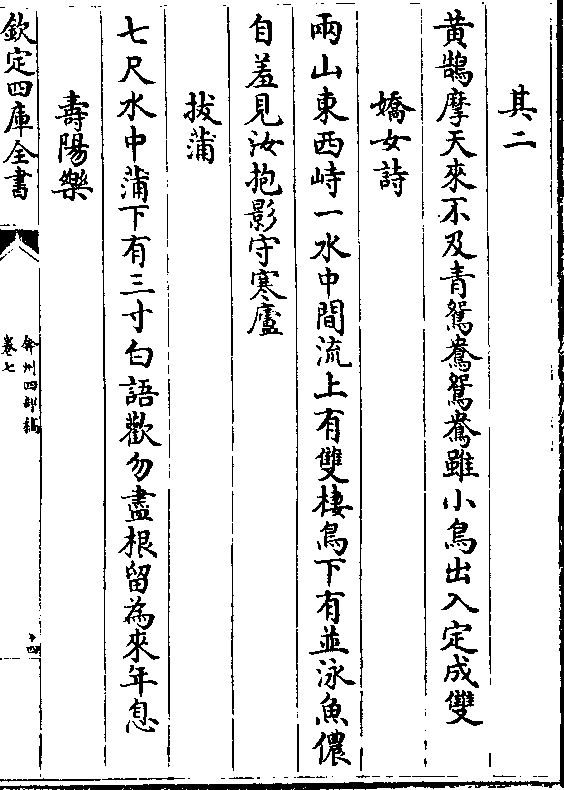 其二
黄鵠摩天來不及青鴛鴦鴛鴦雖小鳥出入定成雙
嬌女詩
兩山東西峙一水中間流上有雙棲鳥下有並泳魚儂
自羞見汝抱影守寒廬
拔蒲
七尺水中蒲下有三寸白語歡勿盡根留為來年息
壽陽樂
欽定四庫全書
弇州四部稿
卷七
十四